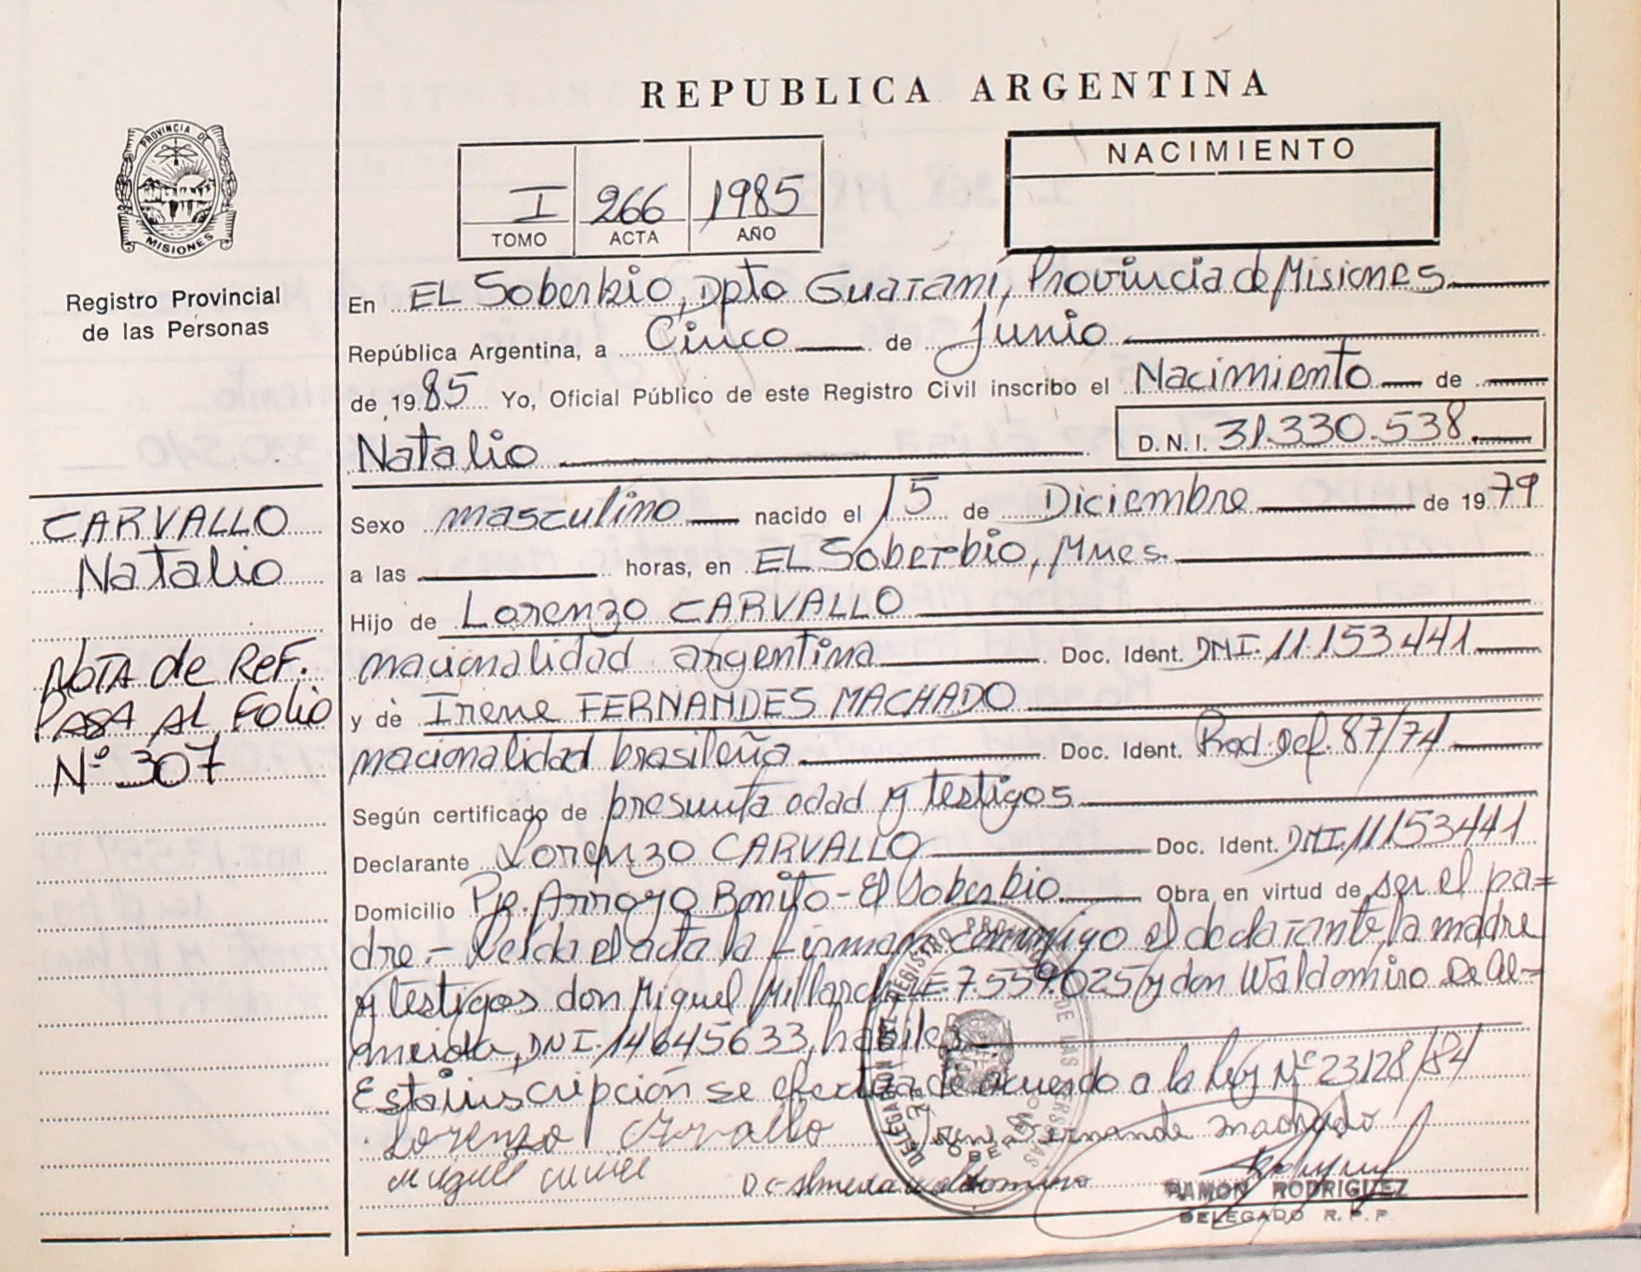 REPUBLICA ARGENTINA
PROVINCIA DE
MISIONES
Registro Provincial
de las Personas
I 266 1985
TOMO ACTA AÑO
NACIMIENTO
En EL Soberbio, Dpto Guaraní, Provincia de Misiones
República Argentina, a Cinco de Junio
de 1985 Yo, Oficial Público de este Registro Civil inscribo el Nacimiento de
Natalio D.N.I. 31.330.538
CARVALLO
Natalio
NOTA de REF.
PASA AL FOLIO
Nº 307
Sexo masculino nacido el 15 de Diciembre de 1979
a las horas, en EL Soberbio, Mnes.
Hijo de Lorenzo CARVALLO
nacionalidad argentina Doc. Ident. DNI. 11.153.441
y de Irene FERNANDES MACHADO
nacionalidad brasileña Doc. Ident. Rad. def. 87/74
Según certificado de presunta edad y testigos
Declarante Lorenzo CARVALLO Doc. Ident. DNI. 11153441
Domicilio Pje. Arroyo Bonito - El Soberbio Obra en virtud de ser el pa=
dre.- Leída el acta la firman conmigo el declarante, la madre
y testigos don Miguel Millard LE 7.559.025 y don Waldomiro De Al=
meida, DNI. 14645633, hábiles
Esta inscripción se efectúa de acuerdo a la ley Nº 23128/84
Lorenzo Carvallo Irene Fernande Machado
Miguel De Almeida Waldomiro
RAMON RODRIGUEZ
DELEGADO R.P.P.